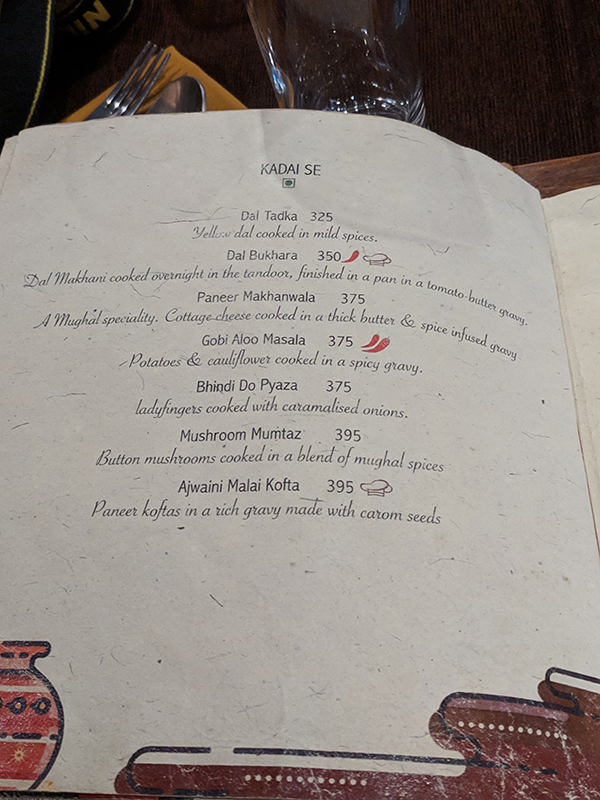 KADAI SE
Dal Tadka 325
Yellow dal cooked in mild spices.
Dal Bukhara 350
Dal Makhani cooked overnight in the tandoor, finished in a pan in a tomato-butter gravy.
Paneer Makhanwala 375
A Mughal speciality. Cottage cheese cooked in a thick butter & spice infused gravy
Gobi Aloo Masala 375
Potatoes & cauliflower cooked in a spicy gravy.
Bhindi Do Pyaza 375
ladyfingers cooked with caramalised onions.
Mushroom Mumtaz 395
Button mushrooms cooked in a blend of mughal spices
Ajwaini Malai Kofta 395
Paneer koftas in a rich gravy made with carom seeds